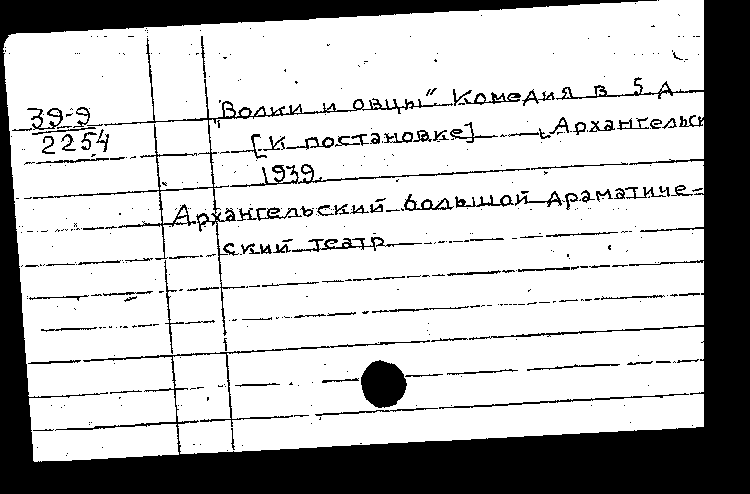 39-9
2254
"Волки и овцы" Комедия в 5 д
[К постановке] Архангельск
1939.
Архангельский большой драматиче-
ский театр